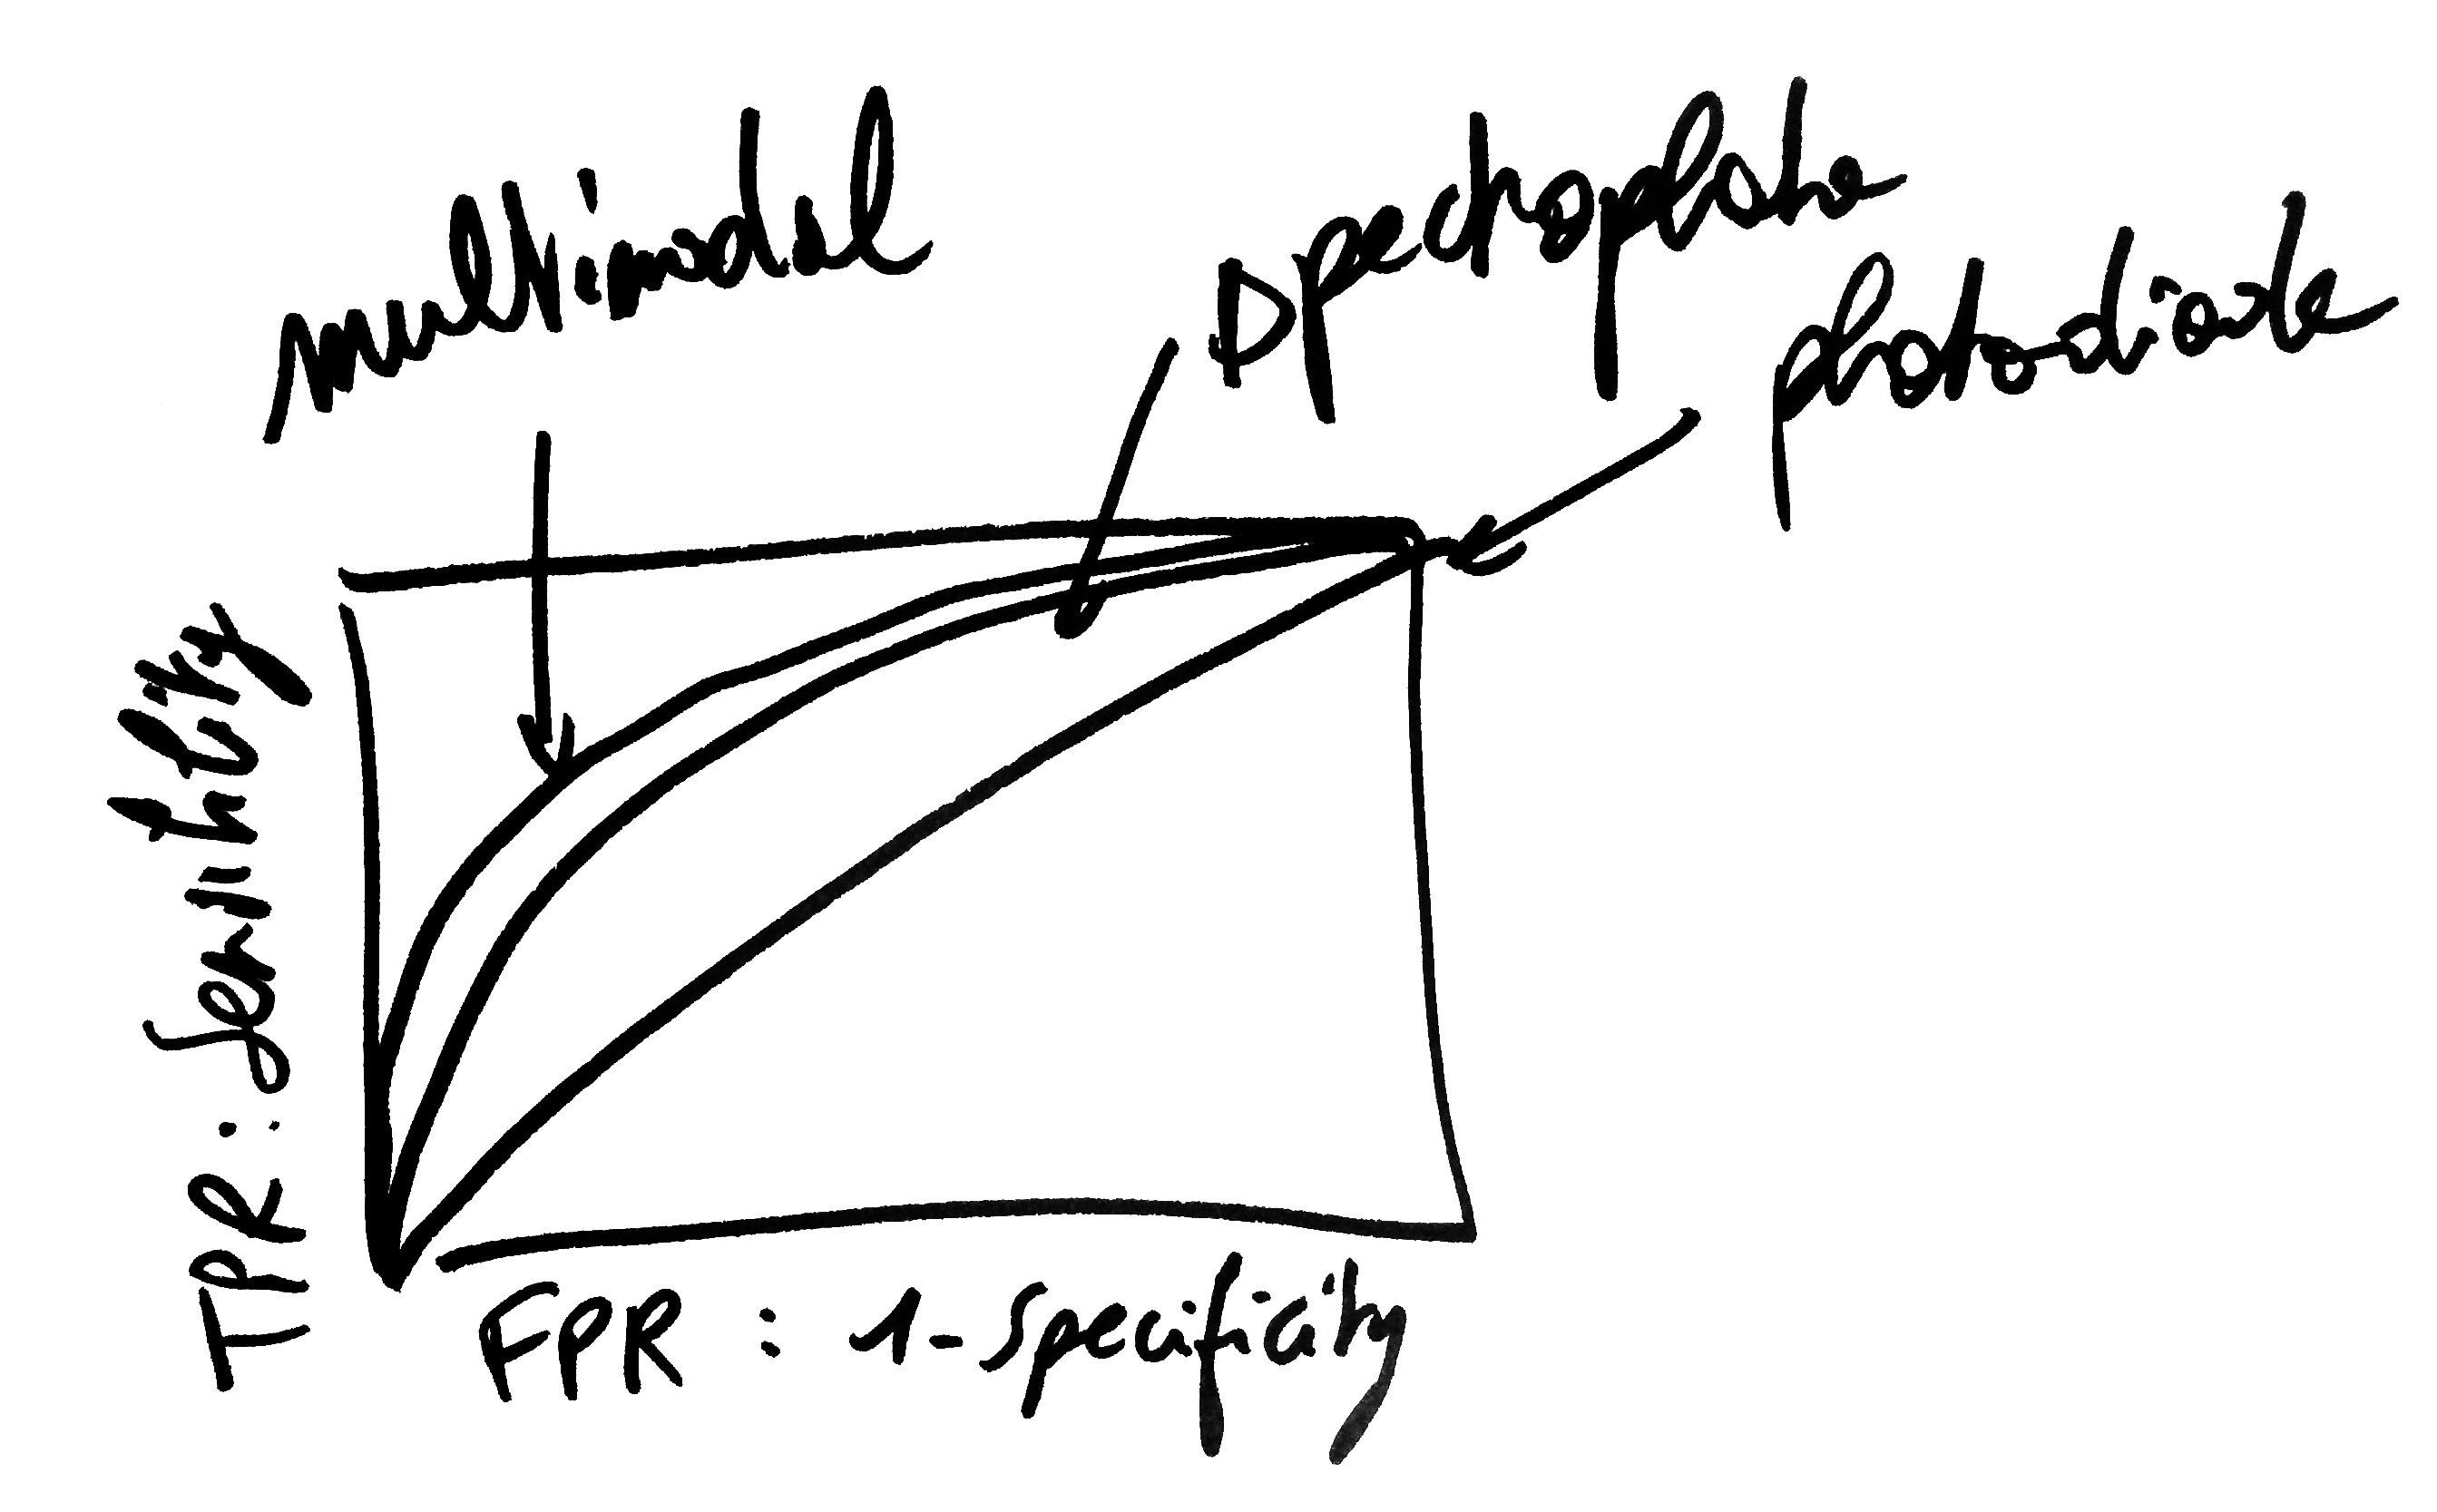 multimodal
photodiode
TPR: Sensitivity
FPR: 1-Specificity